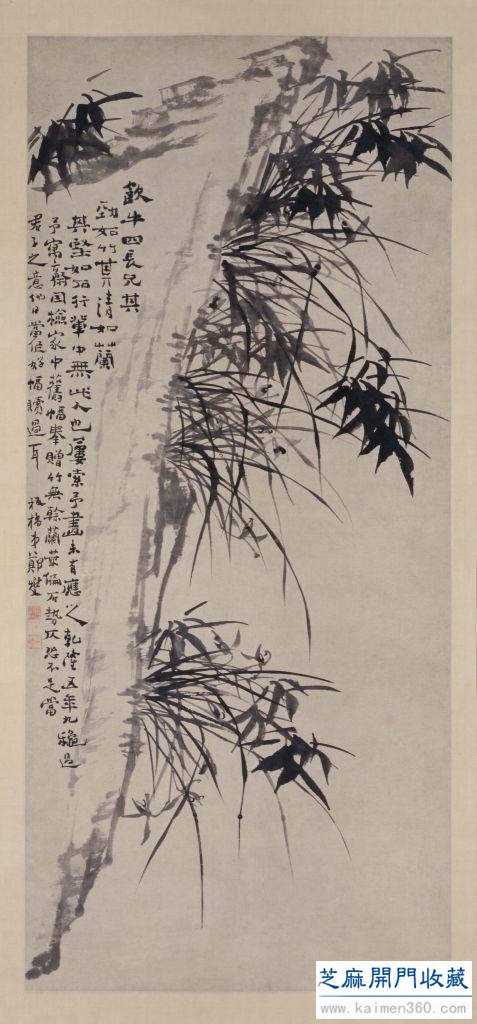 四長兄其
勁如竹其清如蘭
其堅如石行輩中無此人也屢索予畫未有應之乾隆五年九穐過
予寓齋因檢家中舊幅奉贈竹無餘蘭葉偏石勢仄恐不足當
君子之意他日當作好幅贖過耳 板橋弟鄭燮
芝麻開門收藏
www.kaimen360.com